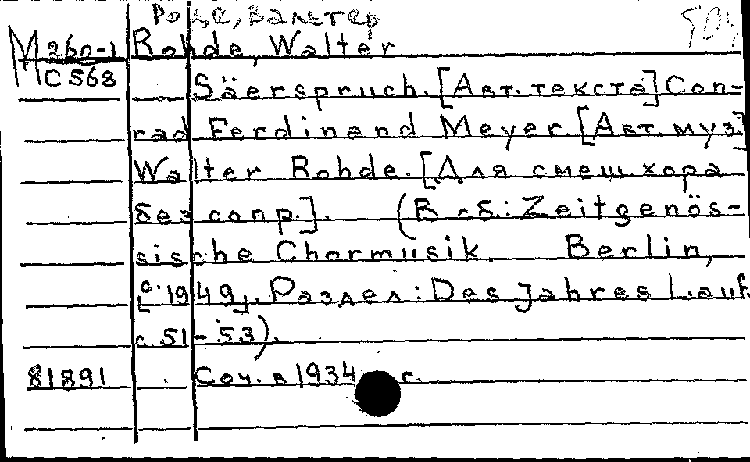 Роде, Вальтер
М 260-1 Rohde, Walter
С 568
Säerspruch. [Авт. текста] Con-
rad Ferdinand Meyer. [Авт. муз.]
Walter Rohde. [Для смеш. хора
без сопр.]. (В сб.: Zeitgenös-
sische Chormusik. Berlin,
[c. 1949]. Раздел: Des Jahres Lauf
с. 51-53).
81891 Соч. в 1934 г.